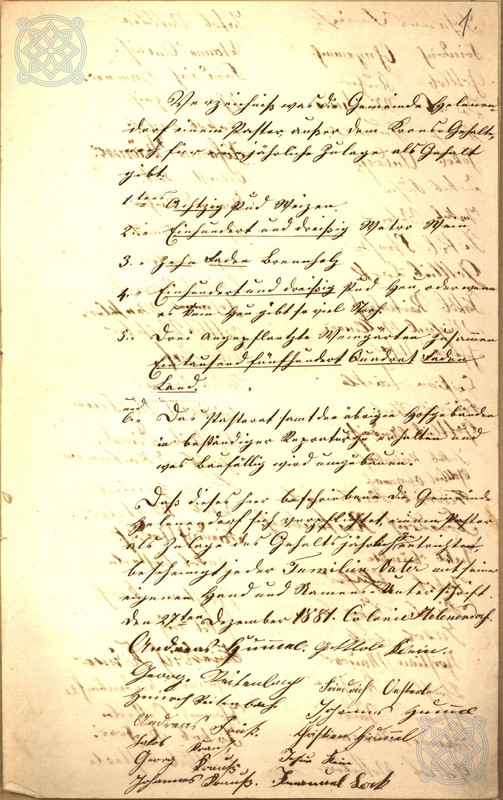 1
Verzeichniß was die Gemeinde Helenen
dorf einem Paster außer dem Krons-Gehalt,
noch für jährliche Zulage als Gehalt
gibt.
1tens Achtzig Pud Weizen
2. " Einhundert und dreißig Wetro Wein
3. " Zehn Faden Brennholz
4. " Einhundert und dreißig Pud Heu, oder wenn
es kein Heu gibt so viel Stroh.
5. " Drei Angepflantzte Weingärten zusammen
Ein tausend fünfhundert Quadrat Faden
Land.
und
6. " Das Pastorat samt den übrigen Hofgebäuden
in beständiger Reperatur zu erhalten und
was baufällig wird umzubauen.
Daß dieses hier beschriebene die Gemeinde
Helenendorf sich verpflichtet, einem Paster
als Zulage des Gehalts jährlich zu entrichten,
bescheinigt jeder Familien Vater mit seiner
eigenen Hand und Namens-Unterschrift.
Den 27ten Dezember 1881. Colonie Helenendorf.
Andreas Hummel. Gottlob Klein.
George Reitenbach Friedrich
Heinrich Reitenbach. Johannes Hummel
Andreas Christian Hummel
Jakob Krauß
Georg Krauß Klein
Johannes Krauß. Immanuel